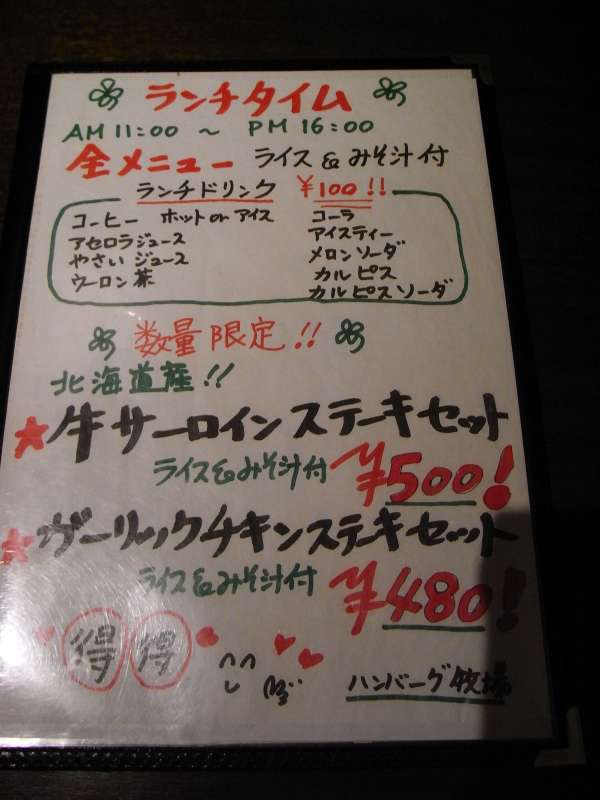 ランチタイム
AM 11:00 ～ PM 16:00
全メニュー ライス&みそ汁付
ランチドリンク ￥100!!
コーヒー ホット or アイス
アセロラジュース
やさいジュース
ウーロン茶
コーラ
アイスティー
メロンソーダ
カルピス
カルピスソーダ
数量限定!!
北海道産!!
★牛サーロインステーキセット
ライス&みそ汁付 ￥500!
★ガーリックチキンステーキセット
ライス&みそ汁付 ￥480!
得 得
ハンバーグ牧場